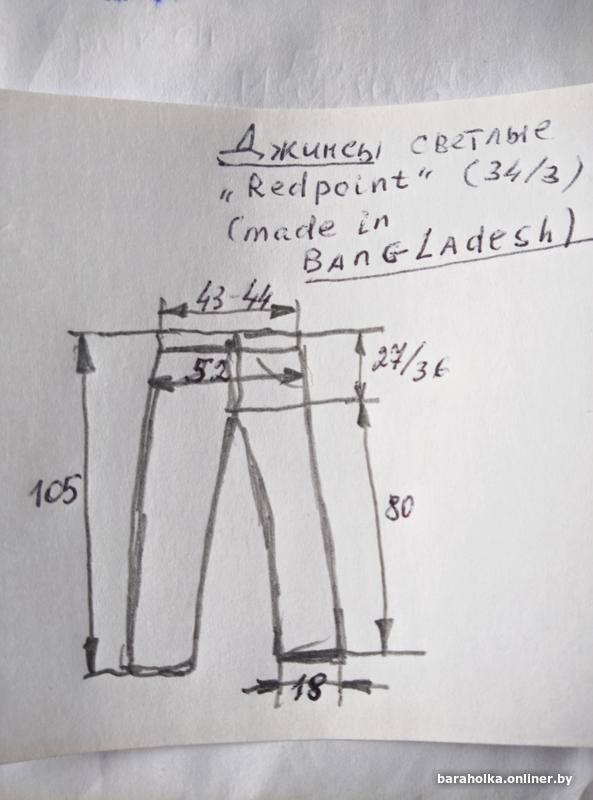 Джинсы светлые
„Redpoint“ (34/3)
(made in
BANGLAdesh)
43-44
52
27/36
105
80
18
baraholka.onliner.by